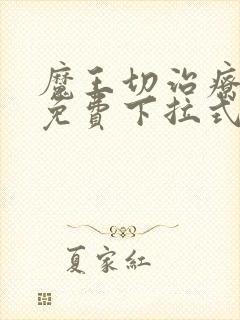 魔王切治療
免費下拉式
夏家紅